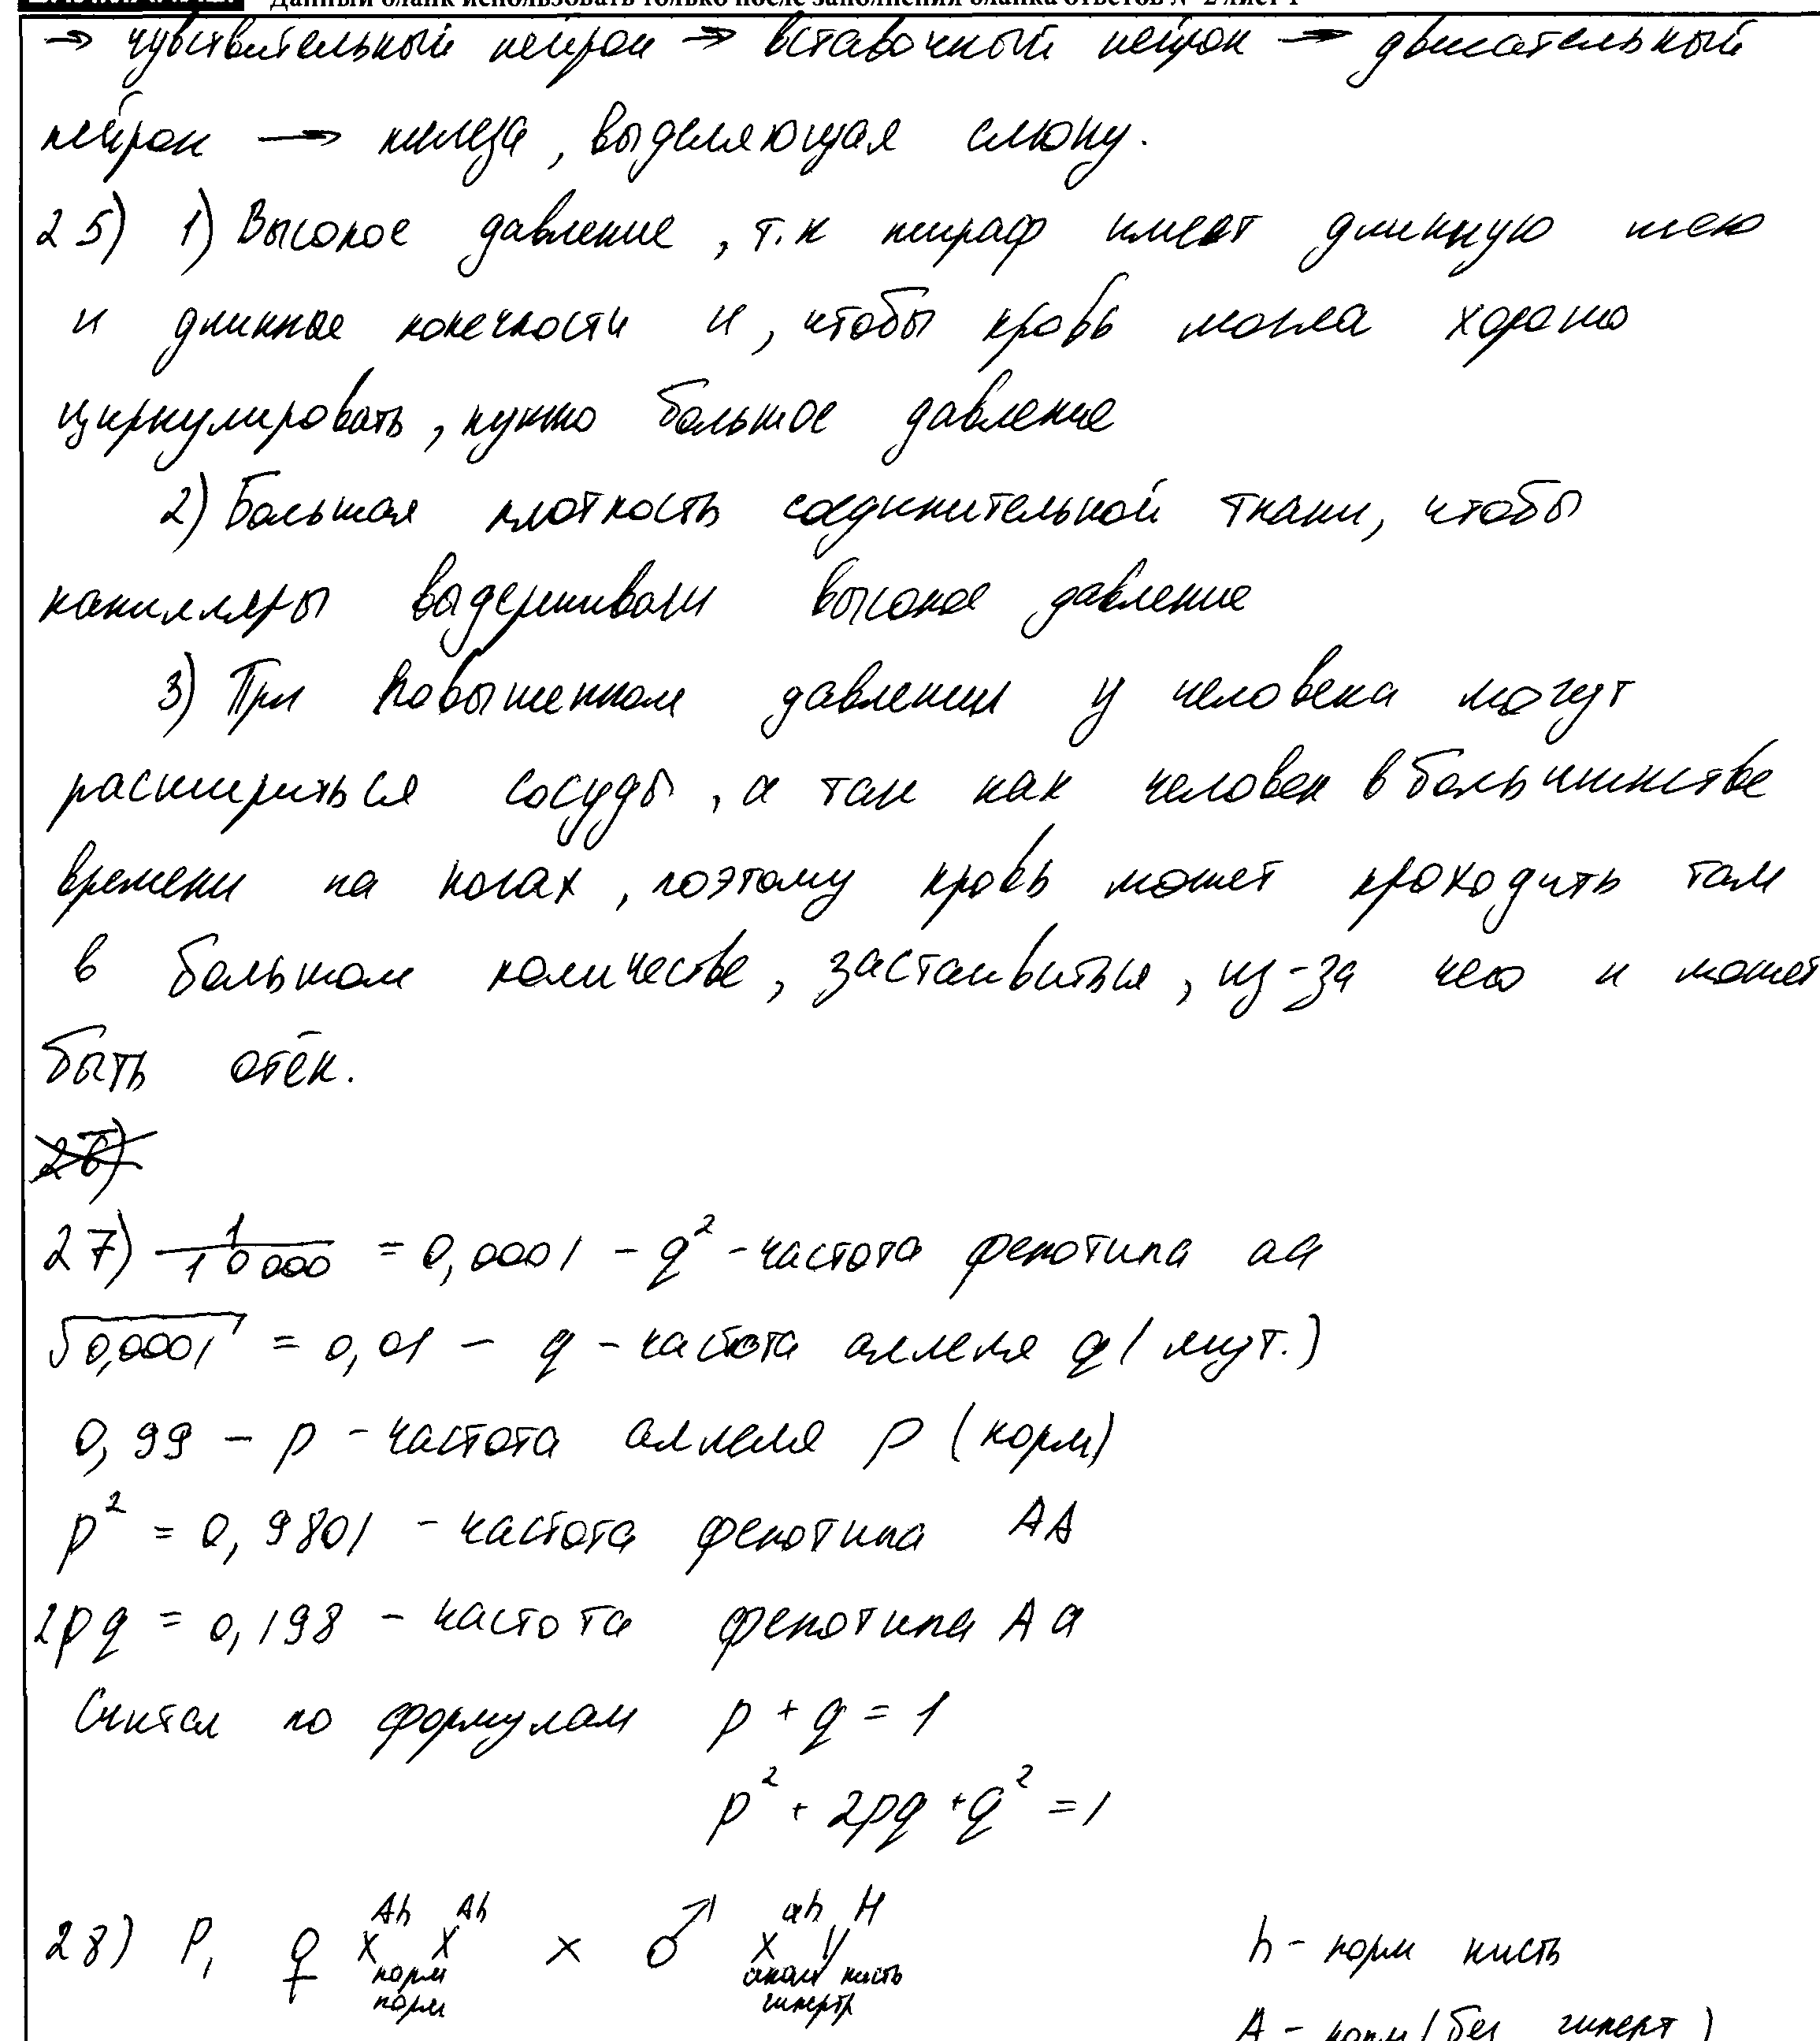 Данный бланк использовать только после заполнения бланка ответов № 2 лист 1
→ чувствительный нейрон → вставочный нейрон → двигательный
нейрон → железа, выделяющая слюну.
25) 1) Высокое давление, т.к жираф имеет длинную шею
и длинные конечности и, чтобы кровь могла хорошо
циркулировать, нужно большое давление
2) Большая плотность соединительной ткани, чтобы
капилляры выдерживали высокое давление
3) При повышенном давлении у человека могут
расшириться сосуды, а так как человек в большинстве
времени на ногах, поэтому кровь может проходить там
в большом количестве, застаиваться, из-за чего и может
быть отёк.
26)
27) 1/10000 = 0,0001 - q² - частота фенотипа aa
√0,0001 = 0,01 - q - частота аллеля q (мут.)
0,99 - p - частота аллеля p (норм)
p² = 0,9801 - частота фенотипа AA
2pq = 0,198 - частота фенотипа Aa
Считал по формулам p + q = 1
p² + 2pq + q² = 1
28) P₁ ♀ X^Ah X^Ah × ♂ X^ah Y^H h - норм кисть
норм аном кисть
норм гипертр
A - норм (без гиперт)